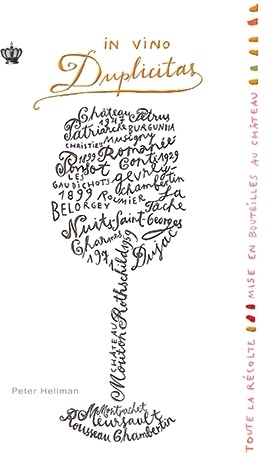 IN VINO
Duplicitas
Château Pétrus
1947
Patriarche BURGUNDIA
CHRISTIES Musigny
1899 Romanée
Ponsot Conti 1929
LES gevrey
GAUDICHOTS chambertin
1899 ROUMIER La
BELORGEY Tache
Nuits Saint-Georges
Charmes
Dujac
1941
1959
CHÂTEAU
Mouton Rothschild
Peter Hellman
Montrachet
Meursault
Rousseau Chambertin
TOUTE LA RÉCOLTE MISE EN BOUTEILLES AU CHÂTEAU